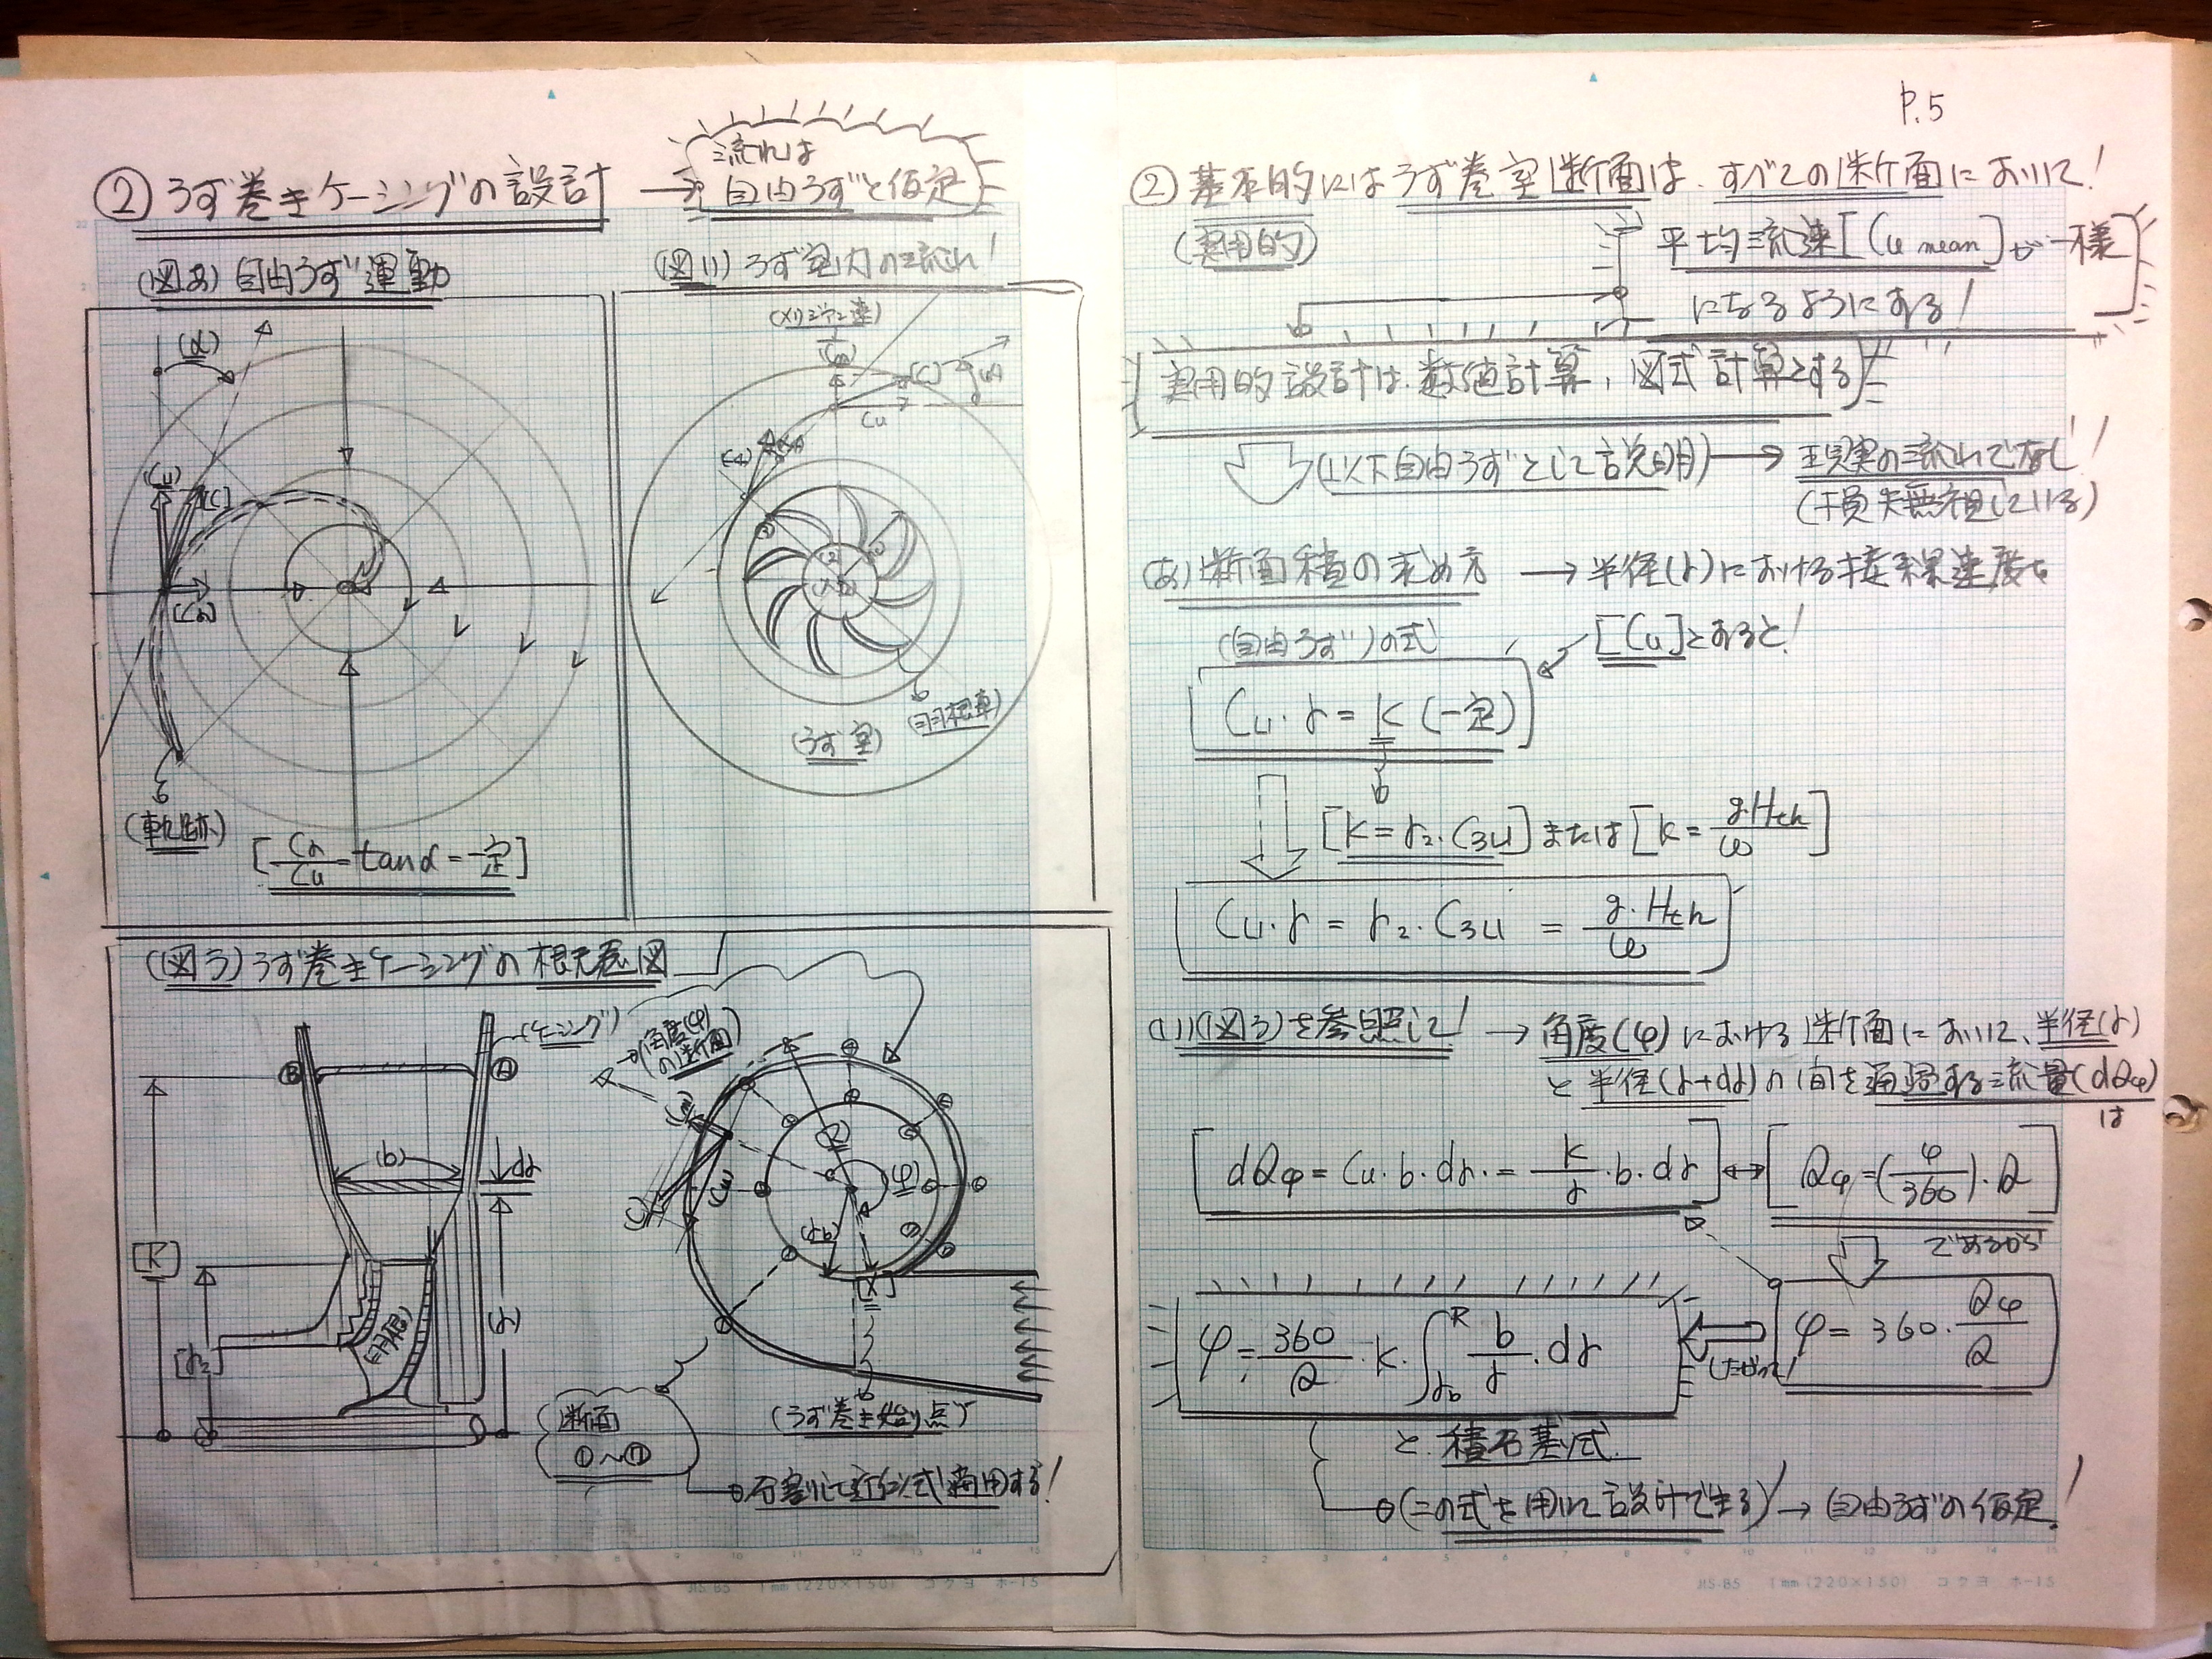 ② うず巻きケーシングの設計 → 流れは
自由うずと仮定
(図あ) 自由うず運動
(α)
(Cu)
[C]
(軌跡)
[Cr/Cu = tanα = 一定]
(図い) うず室内の流れ!
Cu
(うず室)
(羽根車)
(図う) うず巻きケーシングの概念図
(ケーシング)
Ⓑ
Ⓐ
(b)
dr
(r)
[R]
[r₂]
角度(φ)
の断面
(Cu)
(R)
(φ)
(rb)
[X]
(うず巻き始り点)
断面
①～⑫
P.5
② 基本的にはうず巻室断面は、すべての断面において!
(実用的)
平均流速[Cu mean]が一様
になるようにする!
実用的設計は、数値計算、図式計算とする
(以下自由うずとして説明) → 現実の流れでなし!
(損失無視している)
(あ) 断面積の求め方 → 半径(r)における接線速度を
[Cu]とすると!
(自由うず)の式
Cu・r = k (一定)
[k = r₂・C3u] または [k = g・Hth/ω]
Cu・r = r₂・C3u = g・Hth/ω
(い) (図う)を参照して! → 角度(φ)における断面において、半径(r)
と半径(r+dr)の間を通過する流量(dQφ)
は
[dQφ = Cu・b・dr = k/r・b・dr] ↔ [Qφ = (φ/360)・Q]
であるから
φ = 360/Q・k・∫rb R b/r・dr
φ = 360・Qφ/Q
(この式を用いて設計できる) → 自由うずの仮定!
JIS-B5 1mm(220×150) コクヨ ホ-15
JIS-B5 1mm(220×150) コクヨ ホ-15